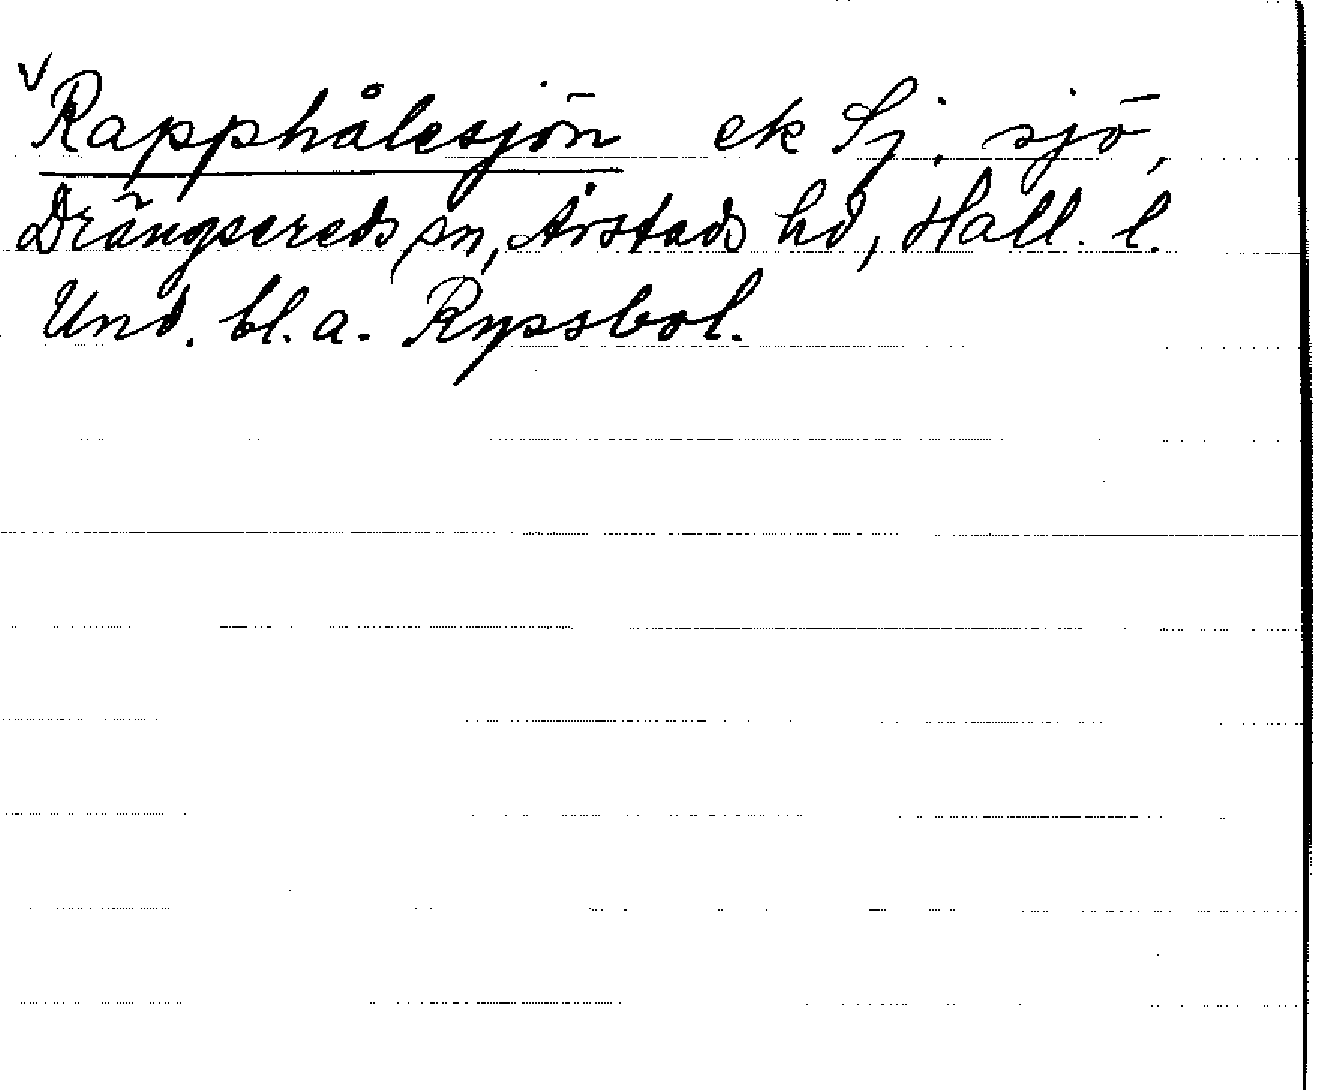 v Rapphålesjön ek Sj. sjö,
Drängsereds sn, Årstads hd, Hall. l.
Und. bl. a. Ryssbol.